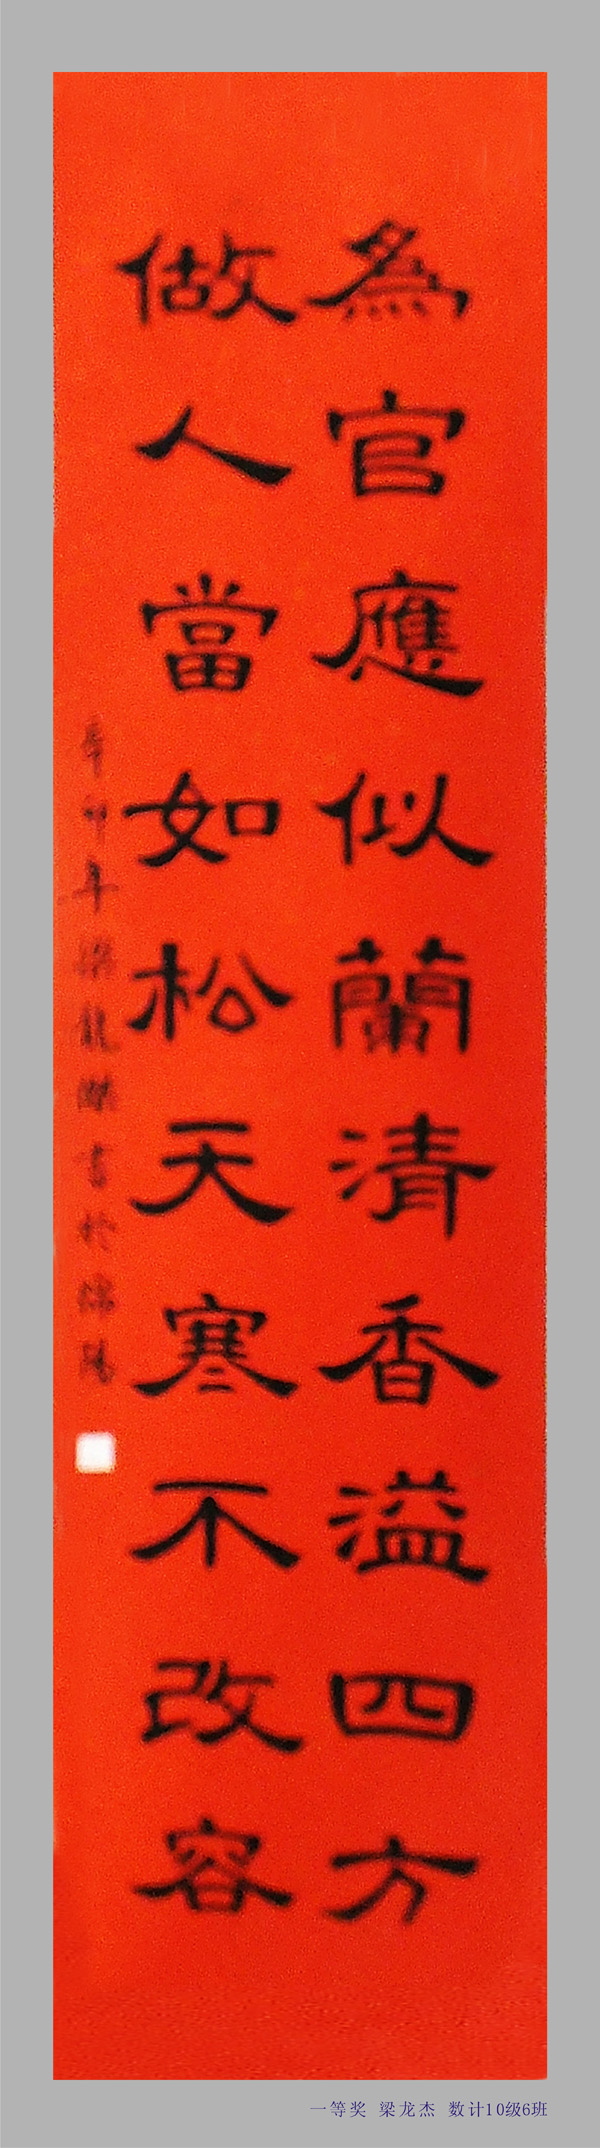 為官應似蘭清香溢四方
做人當如松天寒不改容
辛卯年梁龍傑書於綿陽
一等奖 梁龙杰 数计10级6班